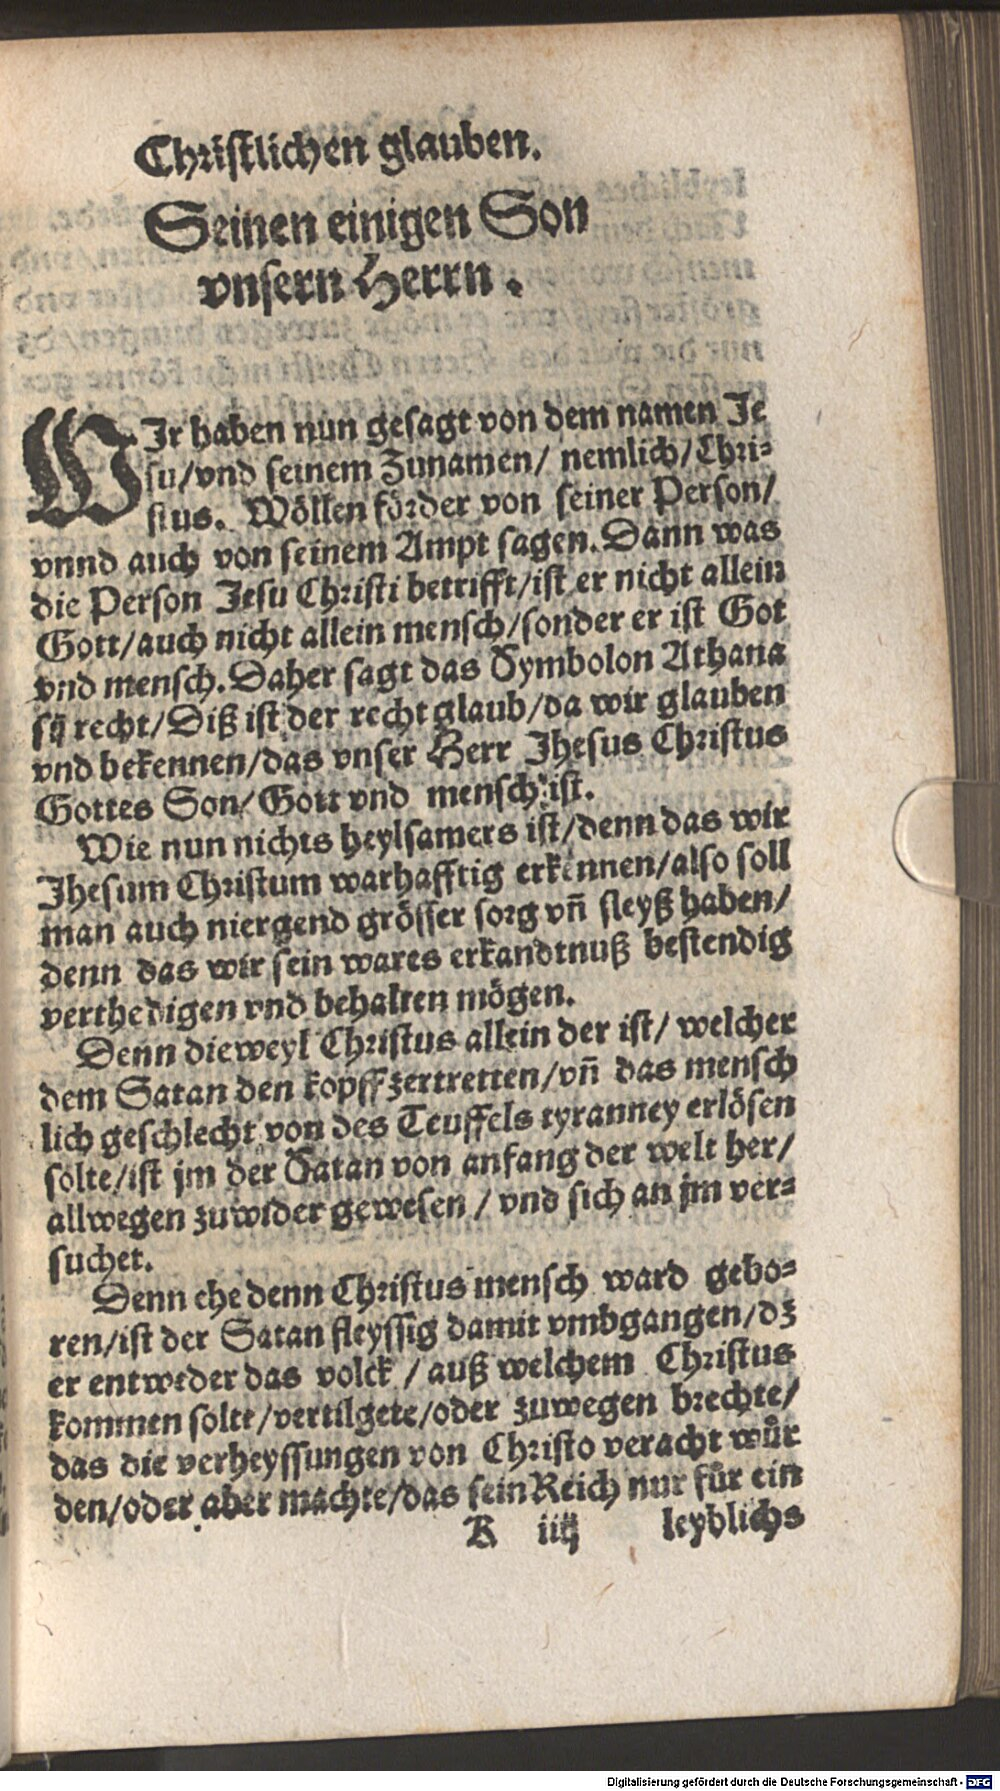 Christlichen glauben.
Seinen einigen Son
vnsern Herrn.
WIr haben nun gesagt von dem namen Je
su/vnd seinem Zunamen/ nemlich/Chri-
stus. Wöllen förder von seiner Person/
vnnd auch von seinem Ampt sagen. Dann was
die Person Jesu Christi betrifft/ist er nicht allein
Gott/auch nicht allein mensch/sonder er ist Got
vnd mensch. Daher sagt das Symbolon Athana
sij recht/Diß ist der recht glaub/da wir glauben
vnd bekennen/das vnser Herr Jhesus Christus
Gottes Son/Gott vnd mensch ist.
Wie nun nichts heylsamers ist/denn das wir
Jhesum Christum warhafftig erkennen/also soll
man auch niergend grösser sorg vn̄ fleyß haben/
denn das wir sein wares erkandtnuß bestendig
verthedigen vnd behalten mögen.
Denn dieweyl Christus allein der ist/ welcher
dem Satan den kopff zertretten/vn̄ das mensch
lich geschlecht von des Teuffels tyranney erlösen
solte/ist jm der Satan von anfang der welt her/
allwegen zuwider gewesen/vnd sich an jm ver-
suchet.
Denn ehe denn Christus mensch ward gebo-
ren/ist der Satan fleyssig damit vmbgangen/dz
er entweder das volck/auß welchem Christus
kommen solte/vertilgete/oder zuwegen brechte/
das die verheyssungen von Christo veracht wůr
den/oder aber machte/das sein Reich nur fůr ein
K iiij leyblichs
Digitalisierung gefördert durch die Deutsche Forschungsgemeinschaft - DFG